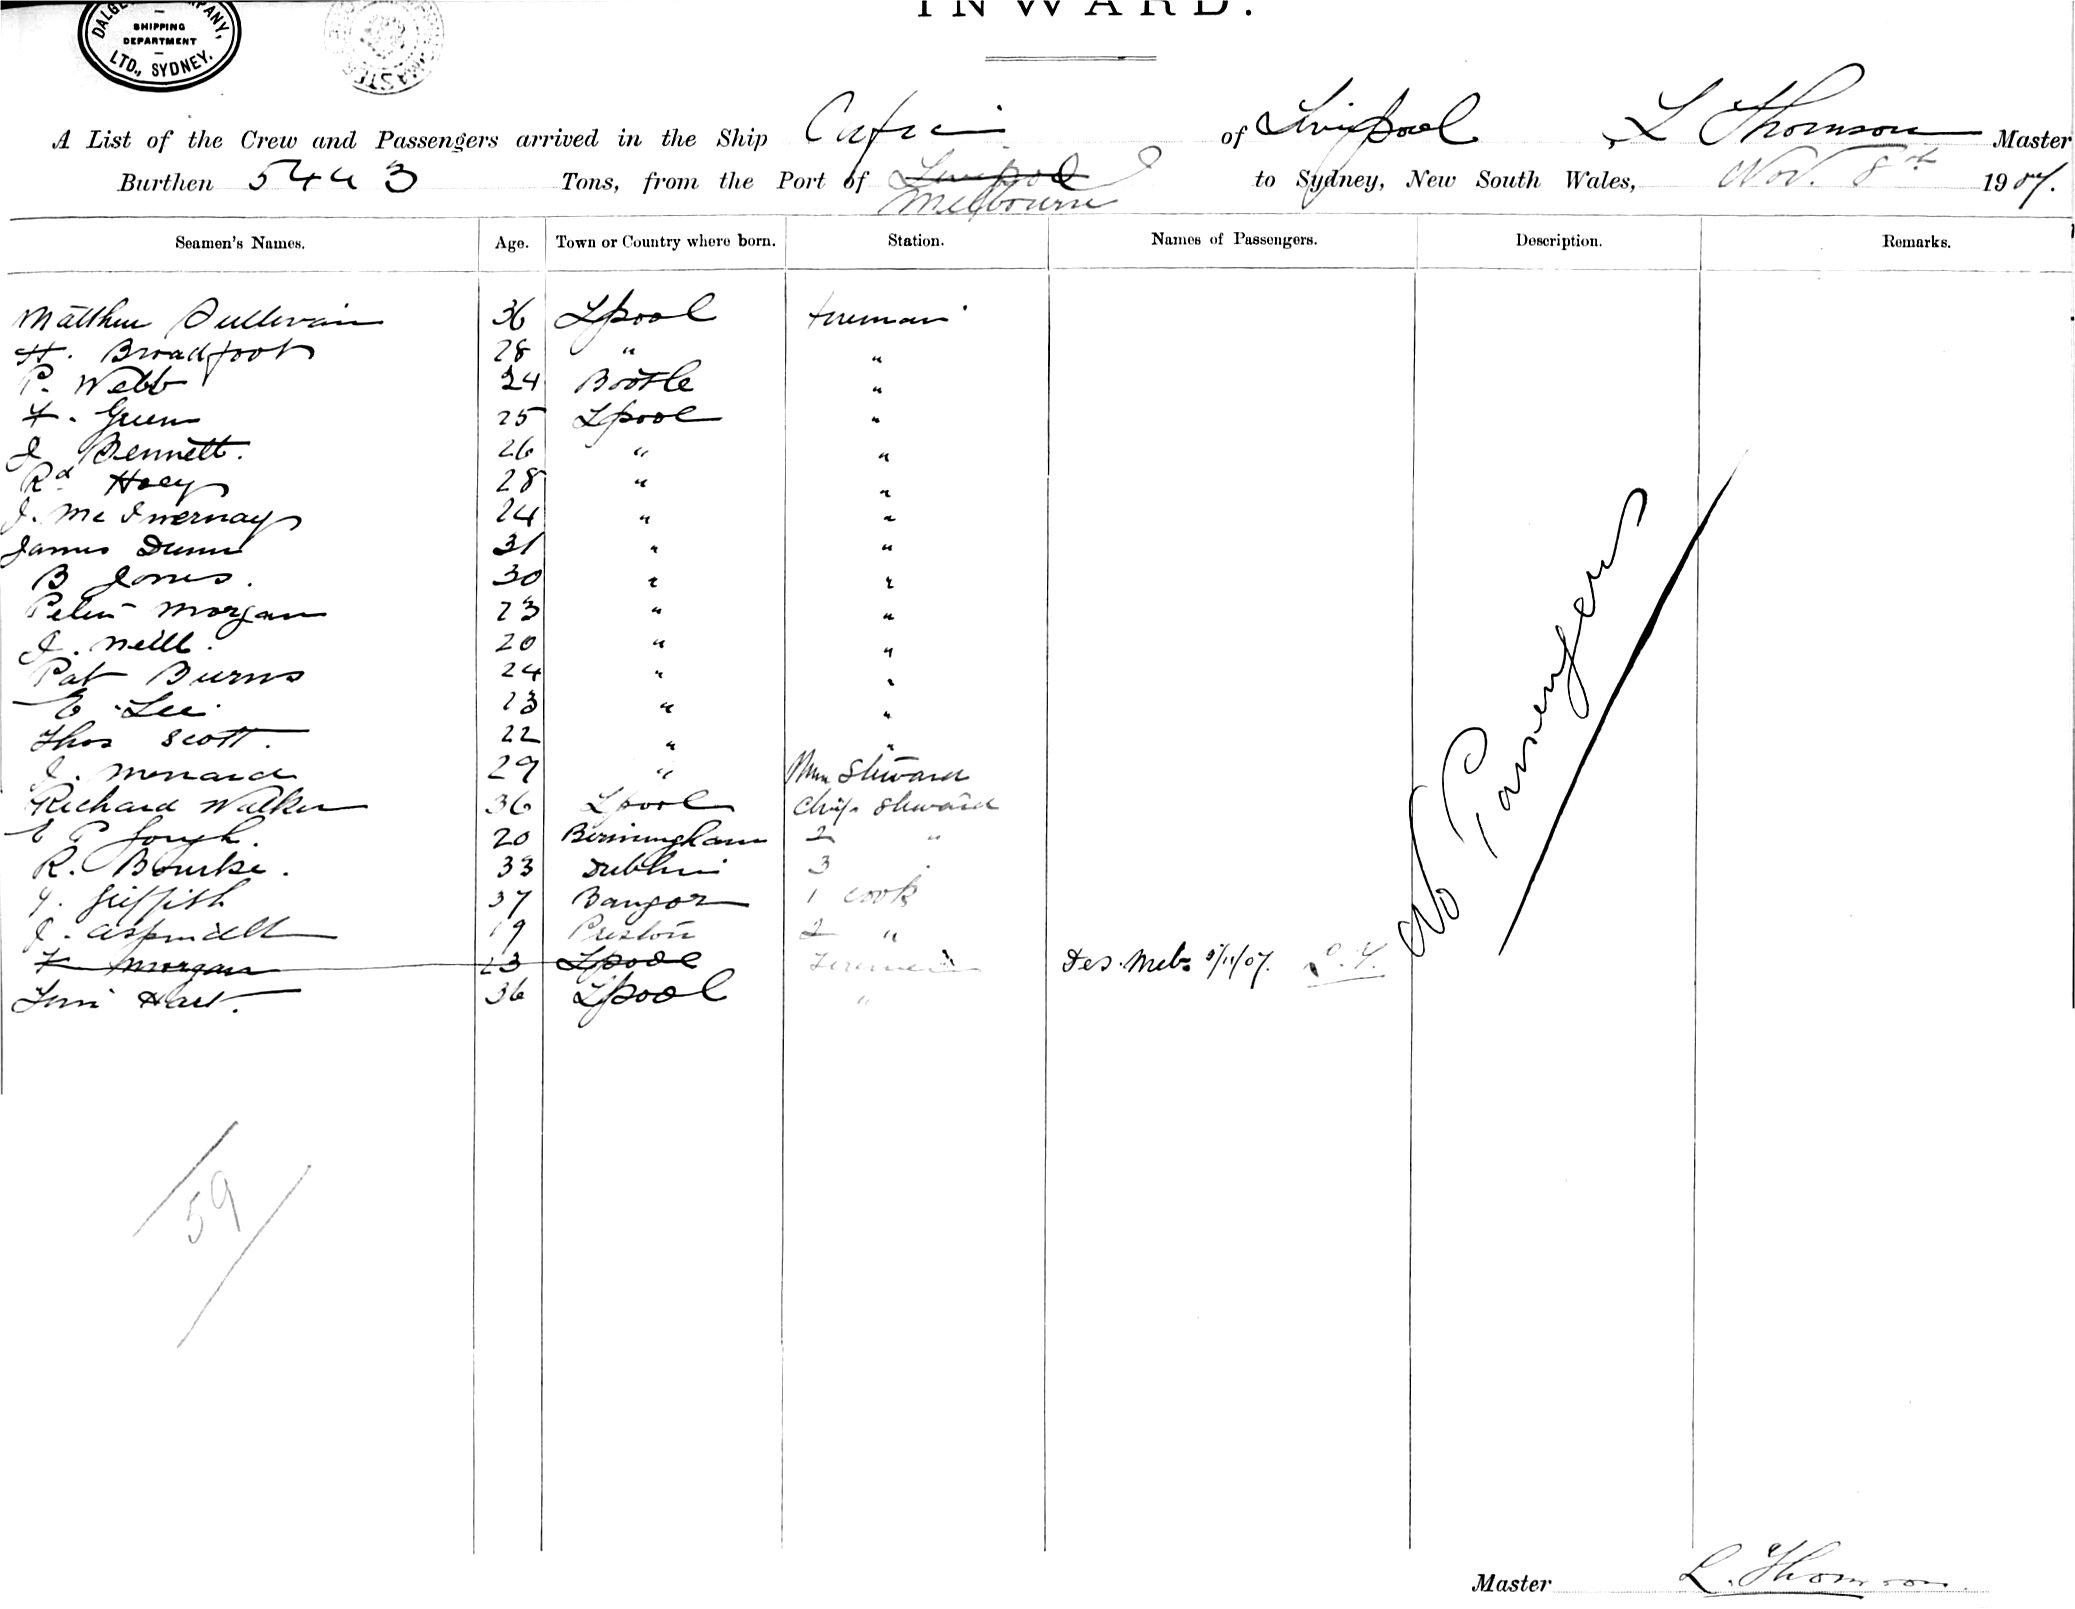 INWARD.
SHIPPING
DEPARTMENT
LTD., SYDNEY.
A List of the Crew and Passengers arrived in the Ship of Liverpool, L Thomson Master
Burthen 5443 Tons, from the Port of Liverpool Melbourne to Sydney, New South Wales, Nov. 8th 1907.
Seamen's Names. Age. Town or Country where born. Station. Names of Passengers. Description. Remarks.
Matthew Sullivan 36 Lpool Fireman
H. Broadfoot 28 " "
P. Webb 24 Bootle "
F. Green 25 Lpool "
J Bennett. 26 " "
Rd Hoey 28 " "
J. McInernay 24 " "
James Dunn 31 " "
B Jones. 30 " "
Peter Morgan 23 " "
J. Neill. 20 " "
Pat Burns 24 " "
E. Lee 23 " "
Thos Scott. 22 " "
J. Menard 29 " Steward
Richard Walker 36 Lpool Chief Steward
E P Gough. 20 Birmingham 2 "
R. Bourke. 33 Dublin 3 "
Griffith 37 Bangor 1 cook
J. Aspinall 19 Preston 2 "
F Morgan 23 Lpool Fireman Des. Melb.
Tim Hart. 36 Lpool "
No Passengers
59
Master L. Thomson.